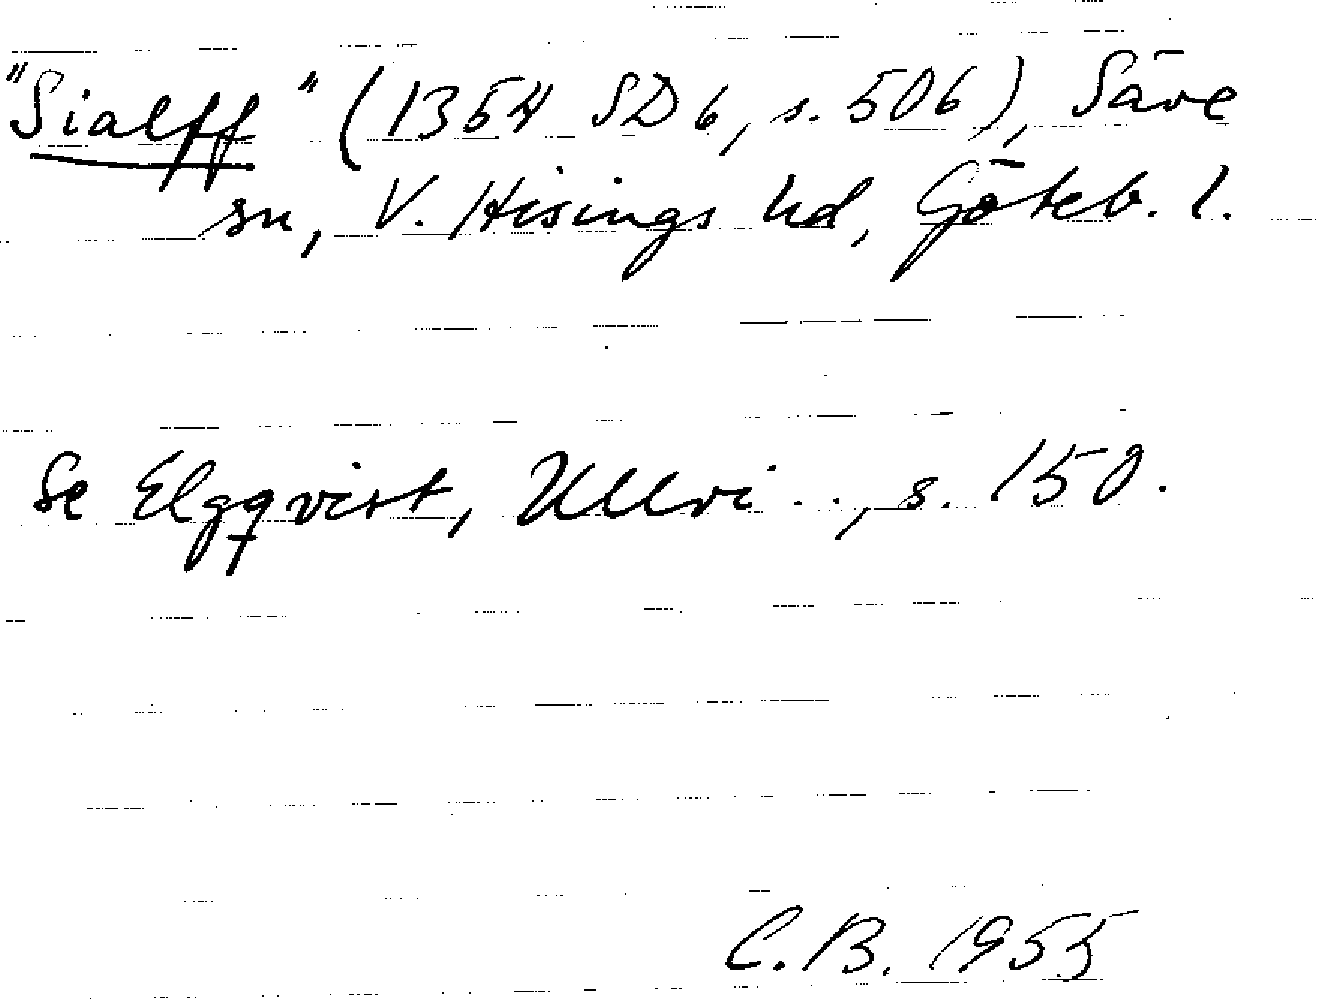 "Sialff" (1354 SD 6, s. 506), Säve
sn, V. Hisings hd, Göteb. l.
Se Elgqvist, Ullvi .., s. 150.
C.B. 1955